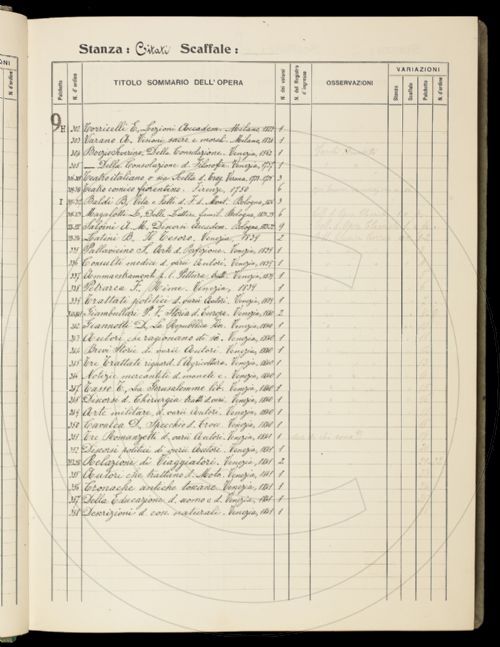 Stanza: Citati Scaffale:
Palchetto N. d'ordine TITOLO SOMMARIO DELL'OPERA N. dei volumi N. del Registro d'ingresso OSSERVAZIONI VARIAZIONI
Stanza Scaffale Palchetto N. d'ordine
9
H 302 Torricelli E. Lezioni Accadem. Milano, 1823 1
303 Varano A. Visioni sacre e moral. Milano, 1820 1
304 Boezio Severino, Della Consolazione. Venezia, 1
305 — Della Consolazione d. Filosofia. Venezia, 1737 1
Teatro italiano o sia Scelta d. Trag. Verona, 3
Teatro comico fiorentino. Firenze, 1750 6
I Baldi B. Vita e fatti d. F. d. Mont. Bologna, 3
Magalotti L. Delle Lettere famil. Bologna, 6
Salvini A. M. Discorsi Accadem. Bologna, 9
Latini B. Il Tesoro. Venezia, 1839
335 Pallavicino S. Arte d. Perfezione. Venezia, 1839 1
336 Consulti medici d. varii Autori. Venezia, 1839 1
337 Ammaestramenti p. l. Pittura Venezia, 1839 1
338 Petrarca F. Rime. Venezia, 1839 1
339 Trattati politici d. varii Autori. Venezia, 1839 1
Giambullari P. F. Storia d. Europa. Venezia, 1840 2
342 Giannotti D. La Repubblica Ven. 1840 1
343 Autori che ragionano di sè. Venezia, 1840 1
344 Brevi Storie di varii Autori. Venezia, 1840 1
345 Tre Trattati riguard. l'Agricoltura. Venezia, 1840 1
346 Notizie mercantili d. monete e. Venezia, 1840 1
347 Tasso T. La Gerusalemme lib. Venezia, 1840 1
348 Discorsi d. Chirurgia tratti d. vari. Venezia, 1840 1
349 Arte militare d. varii Autori. Venezia, 1840 1
350 Cavalca D. Specchio d. Croce. Venezia, 1840 1
351 Tre Romanzetti d. varii Autori. Venezia, 1841 1
352 Discorsi politici di varii Autori. Venezia, 1841 1
Relazione di Viaggiatori. Venezia, 1841 2
355 Autori che trattino d. Moto. Venezia, 1841 1
356 Cronache antiche toscane. Venezia, 1841 1
357 Della Educazione d. uomo e d. Venezia, 1841 1
358 Descrizioni d. cose naturali. Venezia, 1841 1